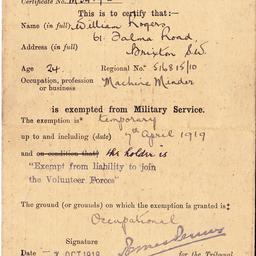 Certificate No.
This is to certify that:—
Name (in full) William Rogers
61 Talma Road,
Address (in full) Brixton S.W.
Age 24. Regional No. 516815/10
Occupation, profession or business Machine Minder
is exempted from Military Service.
The exemption is* temporary
up to and including (date) 7th April 1919
and on condition that the holder is
"Exempt from liability to join
the Volunteer Forces"
The ground (or grounds) on which the exemption is granted is:
Occupational
Signature
Date OCT 1918 for the Tribunal